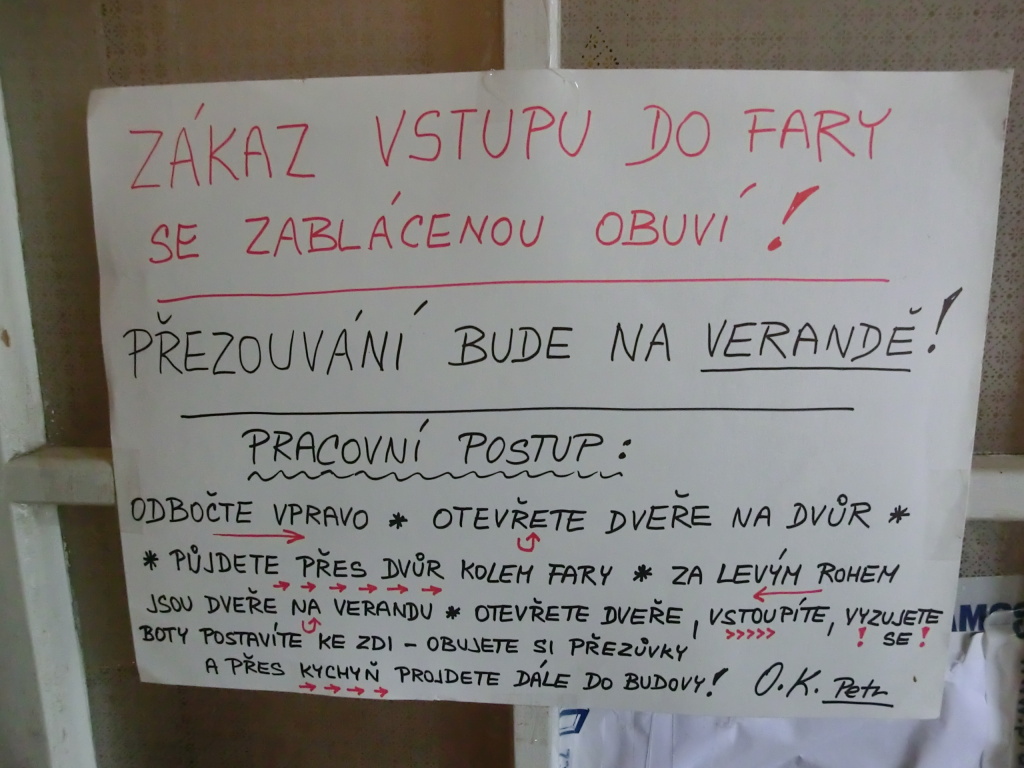 ZÁKAZ VSTUPU DO FARY
SE ZABLÁCENOU OBUVÍ!
PŘEZOUVÁNÍ BUDE NA VERANDĚ!
PRACOVNÍ POSTUP:
ODBOČTE VPRAVO * OTEVŘETE DVEŘE NA DVŮR *
* PŮJDETE PŘES DVŮR KOLEM FARY * ZA LEVÝM ROHEM
JSOU DVEŘE NA VERANDU * OTEVŘETE DVEŘE, VSTOUPÍTE, VYZUJETE
! SE !
BOTY POSTAVÍTE KE ZDI - OBUJETE SI PŘEZŮVKY
A PŘES KYCHYŇ PROJDETE DÁLE DO BUDOVY! O.K. Petr